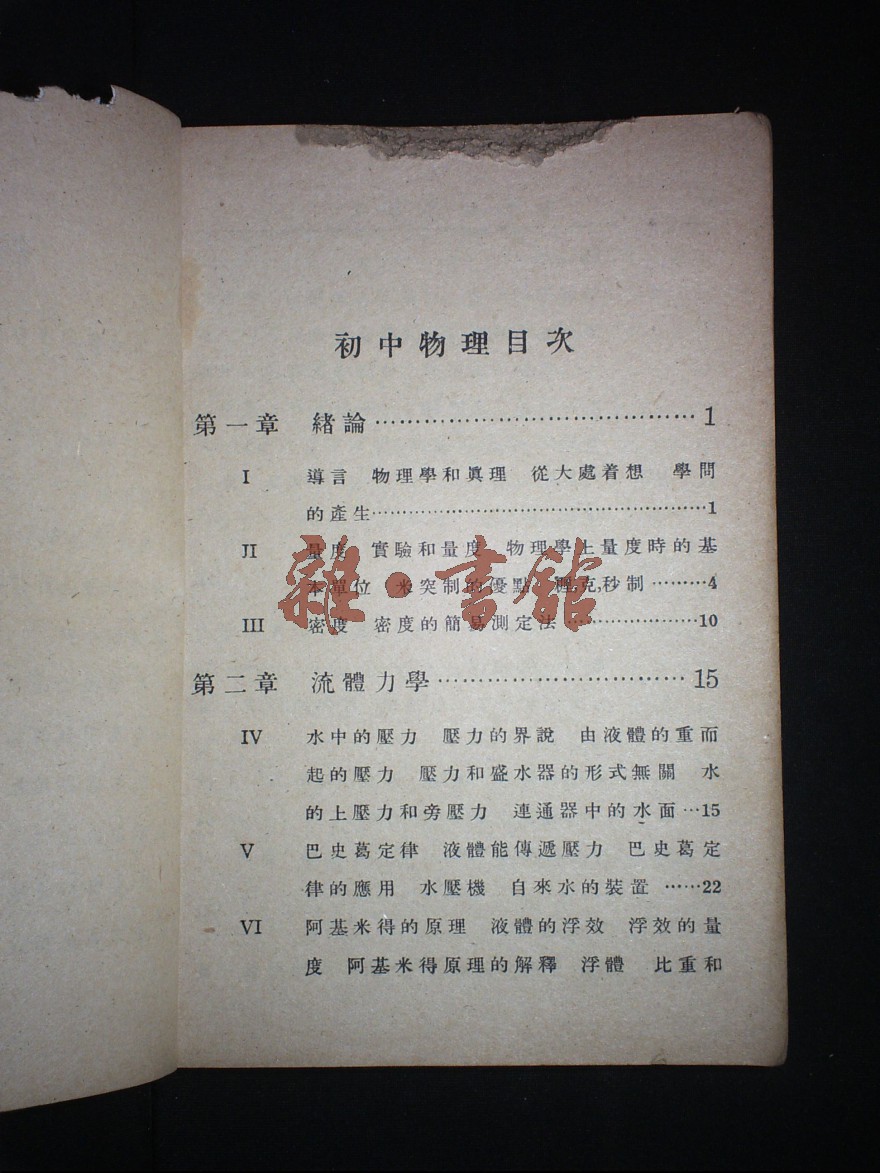 初中物理目次
第一章 緒論…………………………………1
I 導言 物理學和眞理 從大處着想 學問
的產生………………………………………………1
II 量度 實驗和量度 物理學上量度時的基
本單位 米突制的優點 克,秒制………4
III 密度 密度的簡易測定法…………………10
第二章 流體力學…………………………15
IV 水中的壓力 壓力的界說 由液體的重而
起的壓力 壓力和盛水器的形式無關 水
的上壓力和旁壓力 連通器中的水面…15
V 巴史葛定律 液體能傳遞壓力 巴史葛定
律的應用 水壓機 自來水的裝置……22
VI 阿基米得的原理 液體的浮效 浮效的量
度 阿基米得原理的解釋 浮體 比重和
雜·書館